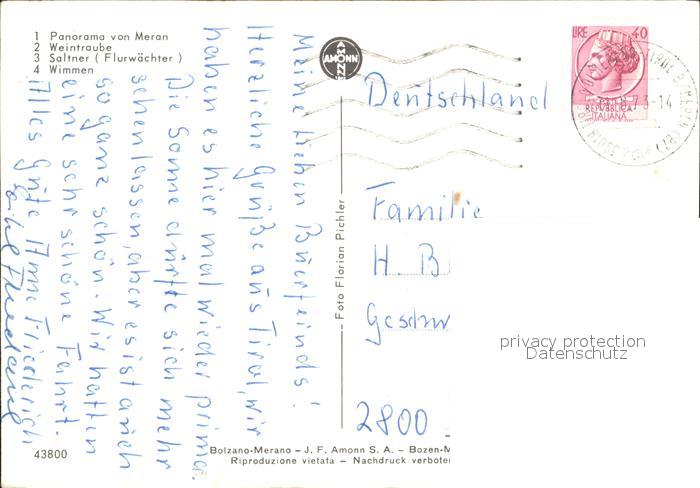 1 Panorama von Meran
2 Weintraube
3 Saltner ( Flurwächter )
4 Wimmen
Meine lieben
Herzliche Grüße aus Tirol, wir
haben es hier mal wieder prima.
Die Sonne dürfte sich mehr
sehen lassen, aber es ist auch
so ganz schön. Wir hatten
eine sehr schöne Fahrt.
Alles Gute Anne
AMONN
LIRE 40
REPUBBLICA
ITALIANA
Deutschland
Familie
H. B
Geschw
2800
privacy protection
Datenschutz
Foto Florian Pichler
43800
Bolzano-Merano – J. F. Amonn S. A. – Bozen-M
Riproduzione vietata – Nachdruck verboten